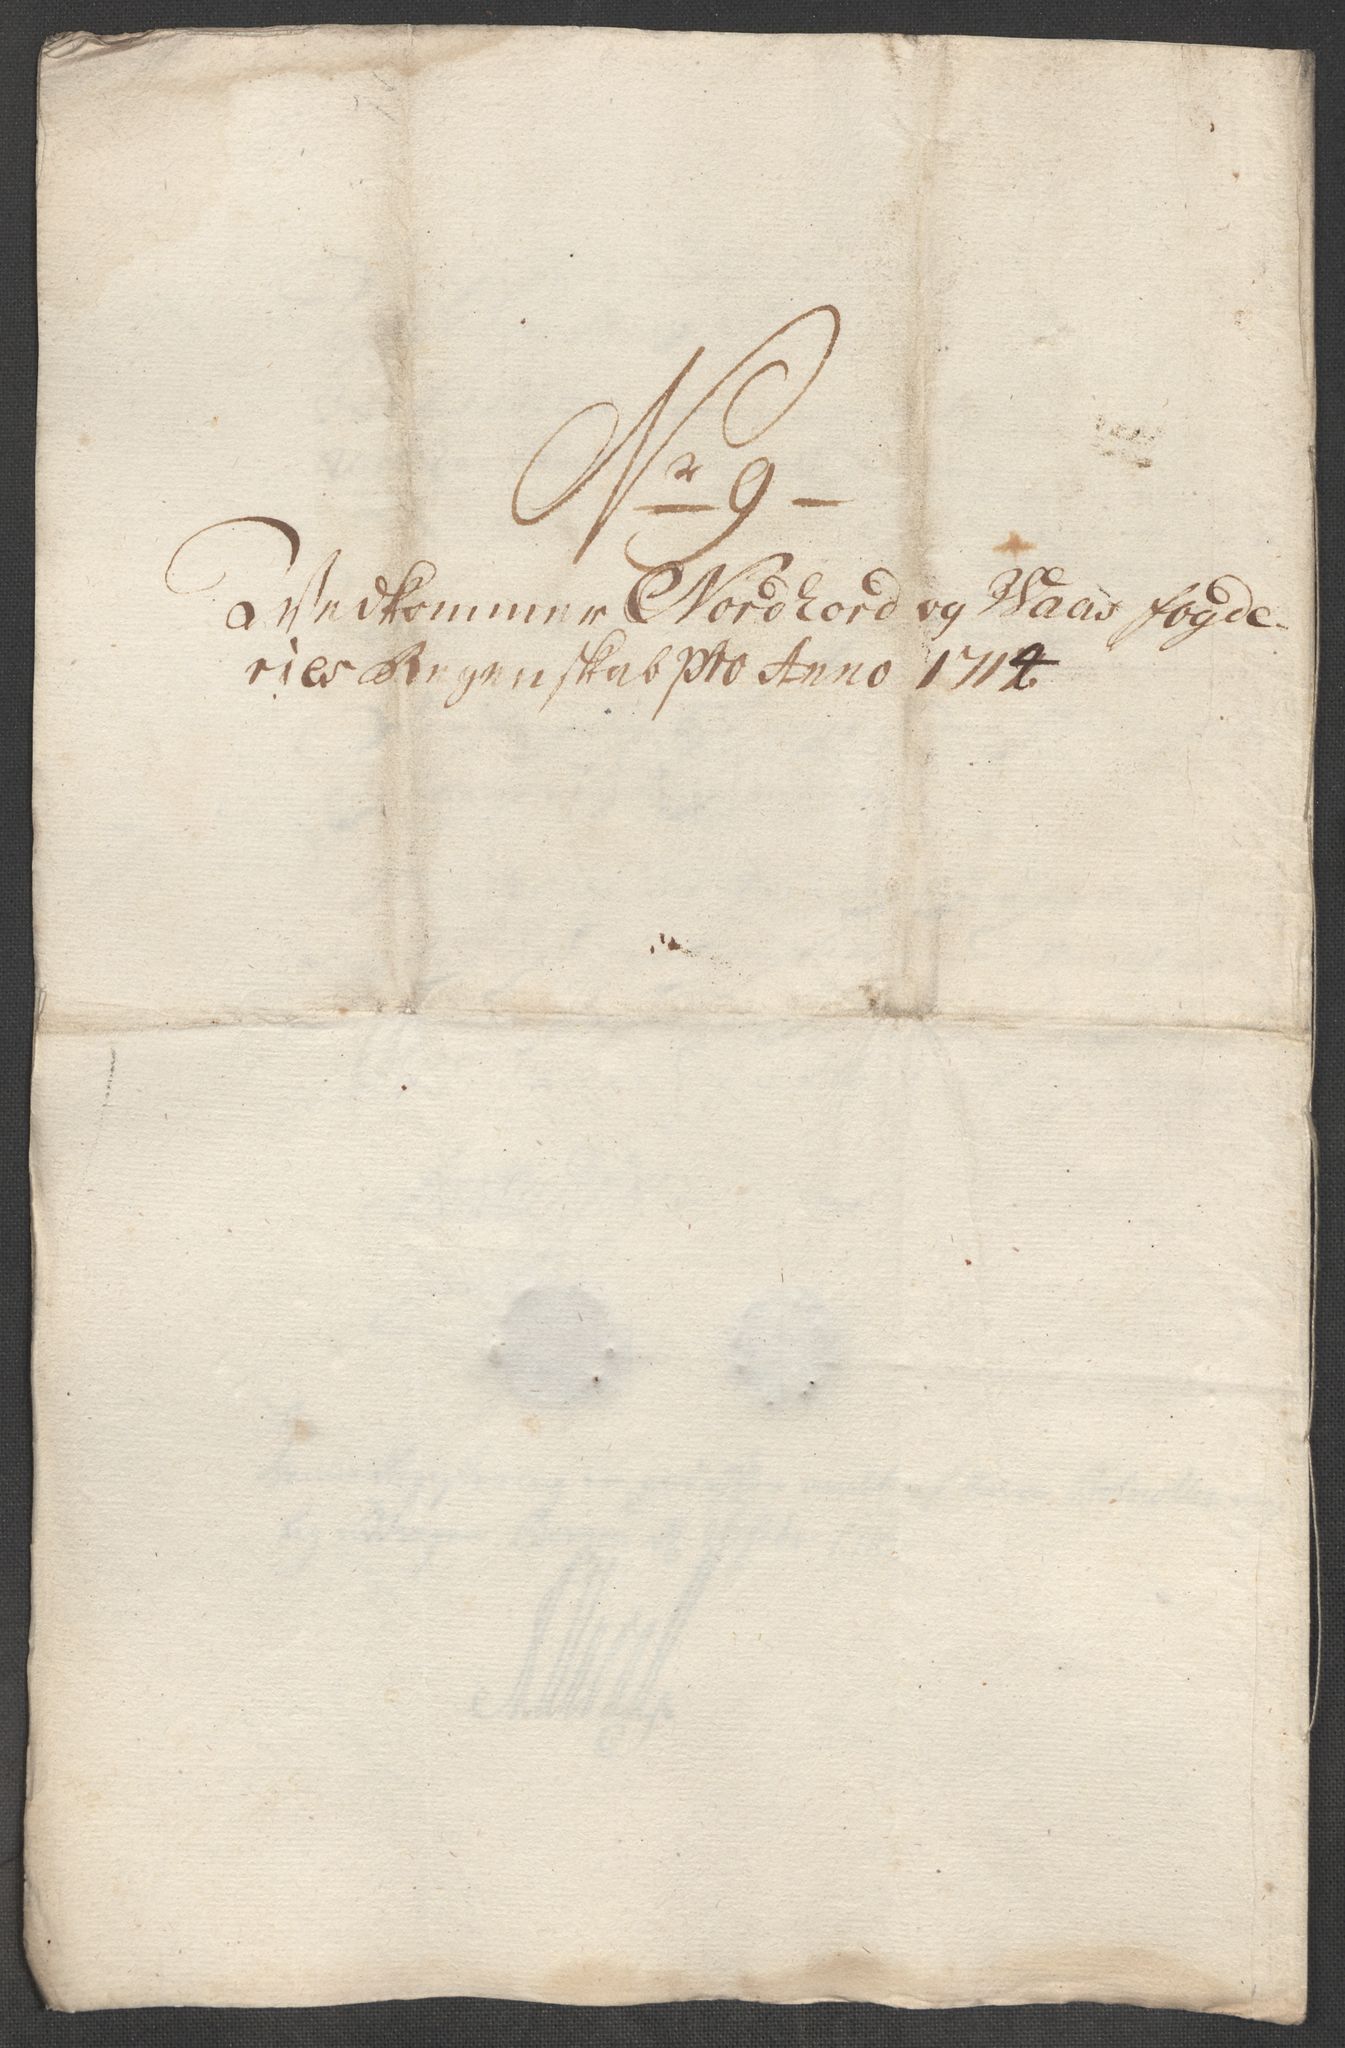 Nr 9 —
Vedkommer Nordhord og Waas fogde-
ries Regenskab pro Anno 1714